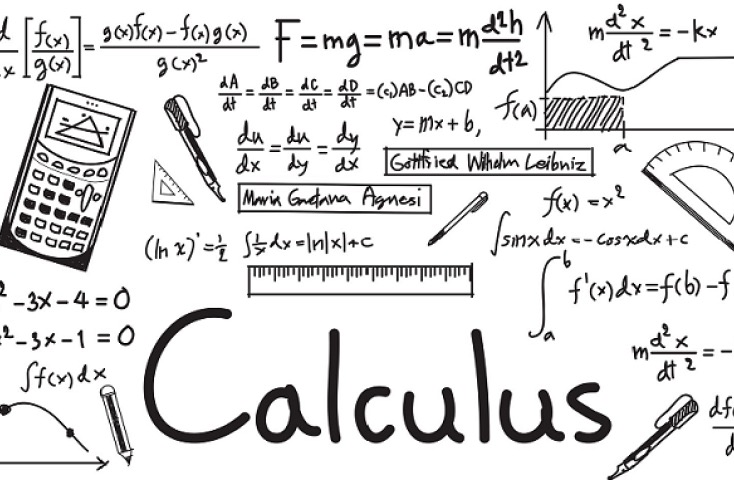 d/dx [f(x)/g(x)] = g(x)f(x) - f(x)g(x) / g(x)²
F = mg = ma = m d²h/dt2
m d²x/dt² = -kx
dA/dt = dB/dt = dC/dt = dD/dt = (c₁)AB-(c₂)CD
f(a)
y = mx + b,
a
du/dx = du/dy = dy/dx
Gottfried Wilhelm Leibniz
Maria Gaetana Agnesi
f(x) = x²
(ln x)' = 1/2
∫1/x dx = ln|x|+c
∫sinx dx = -cosxdx + c
∫ₐᵇ f'(x) dx = f(b) - f
² - 3x - 4 = 0
x² - 3x - 1 = 0
m d²x/dt² = -
∫f(x) dx
Calculus
df